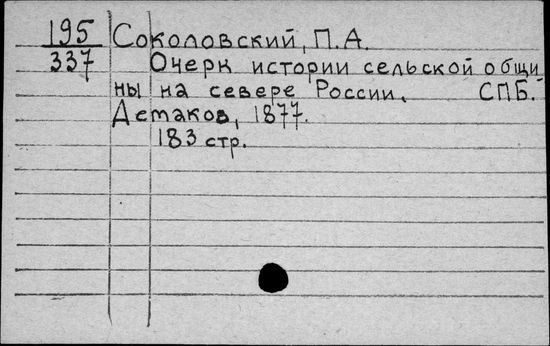 195 Соколовский, П.А.
337 Очерк истории сельской общи
ны на севере России. СПБ.
Демаков, 1877.
183 стр.